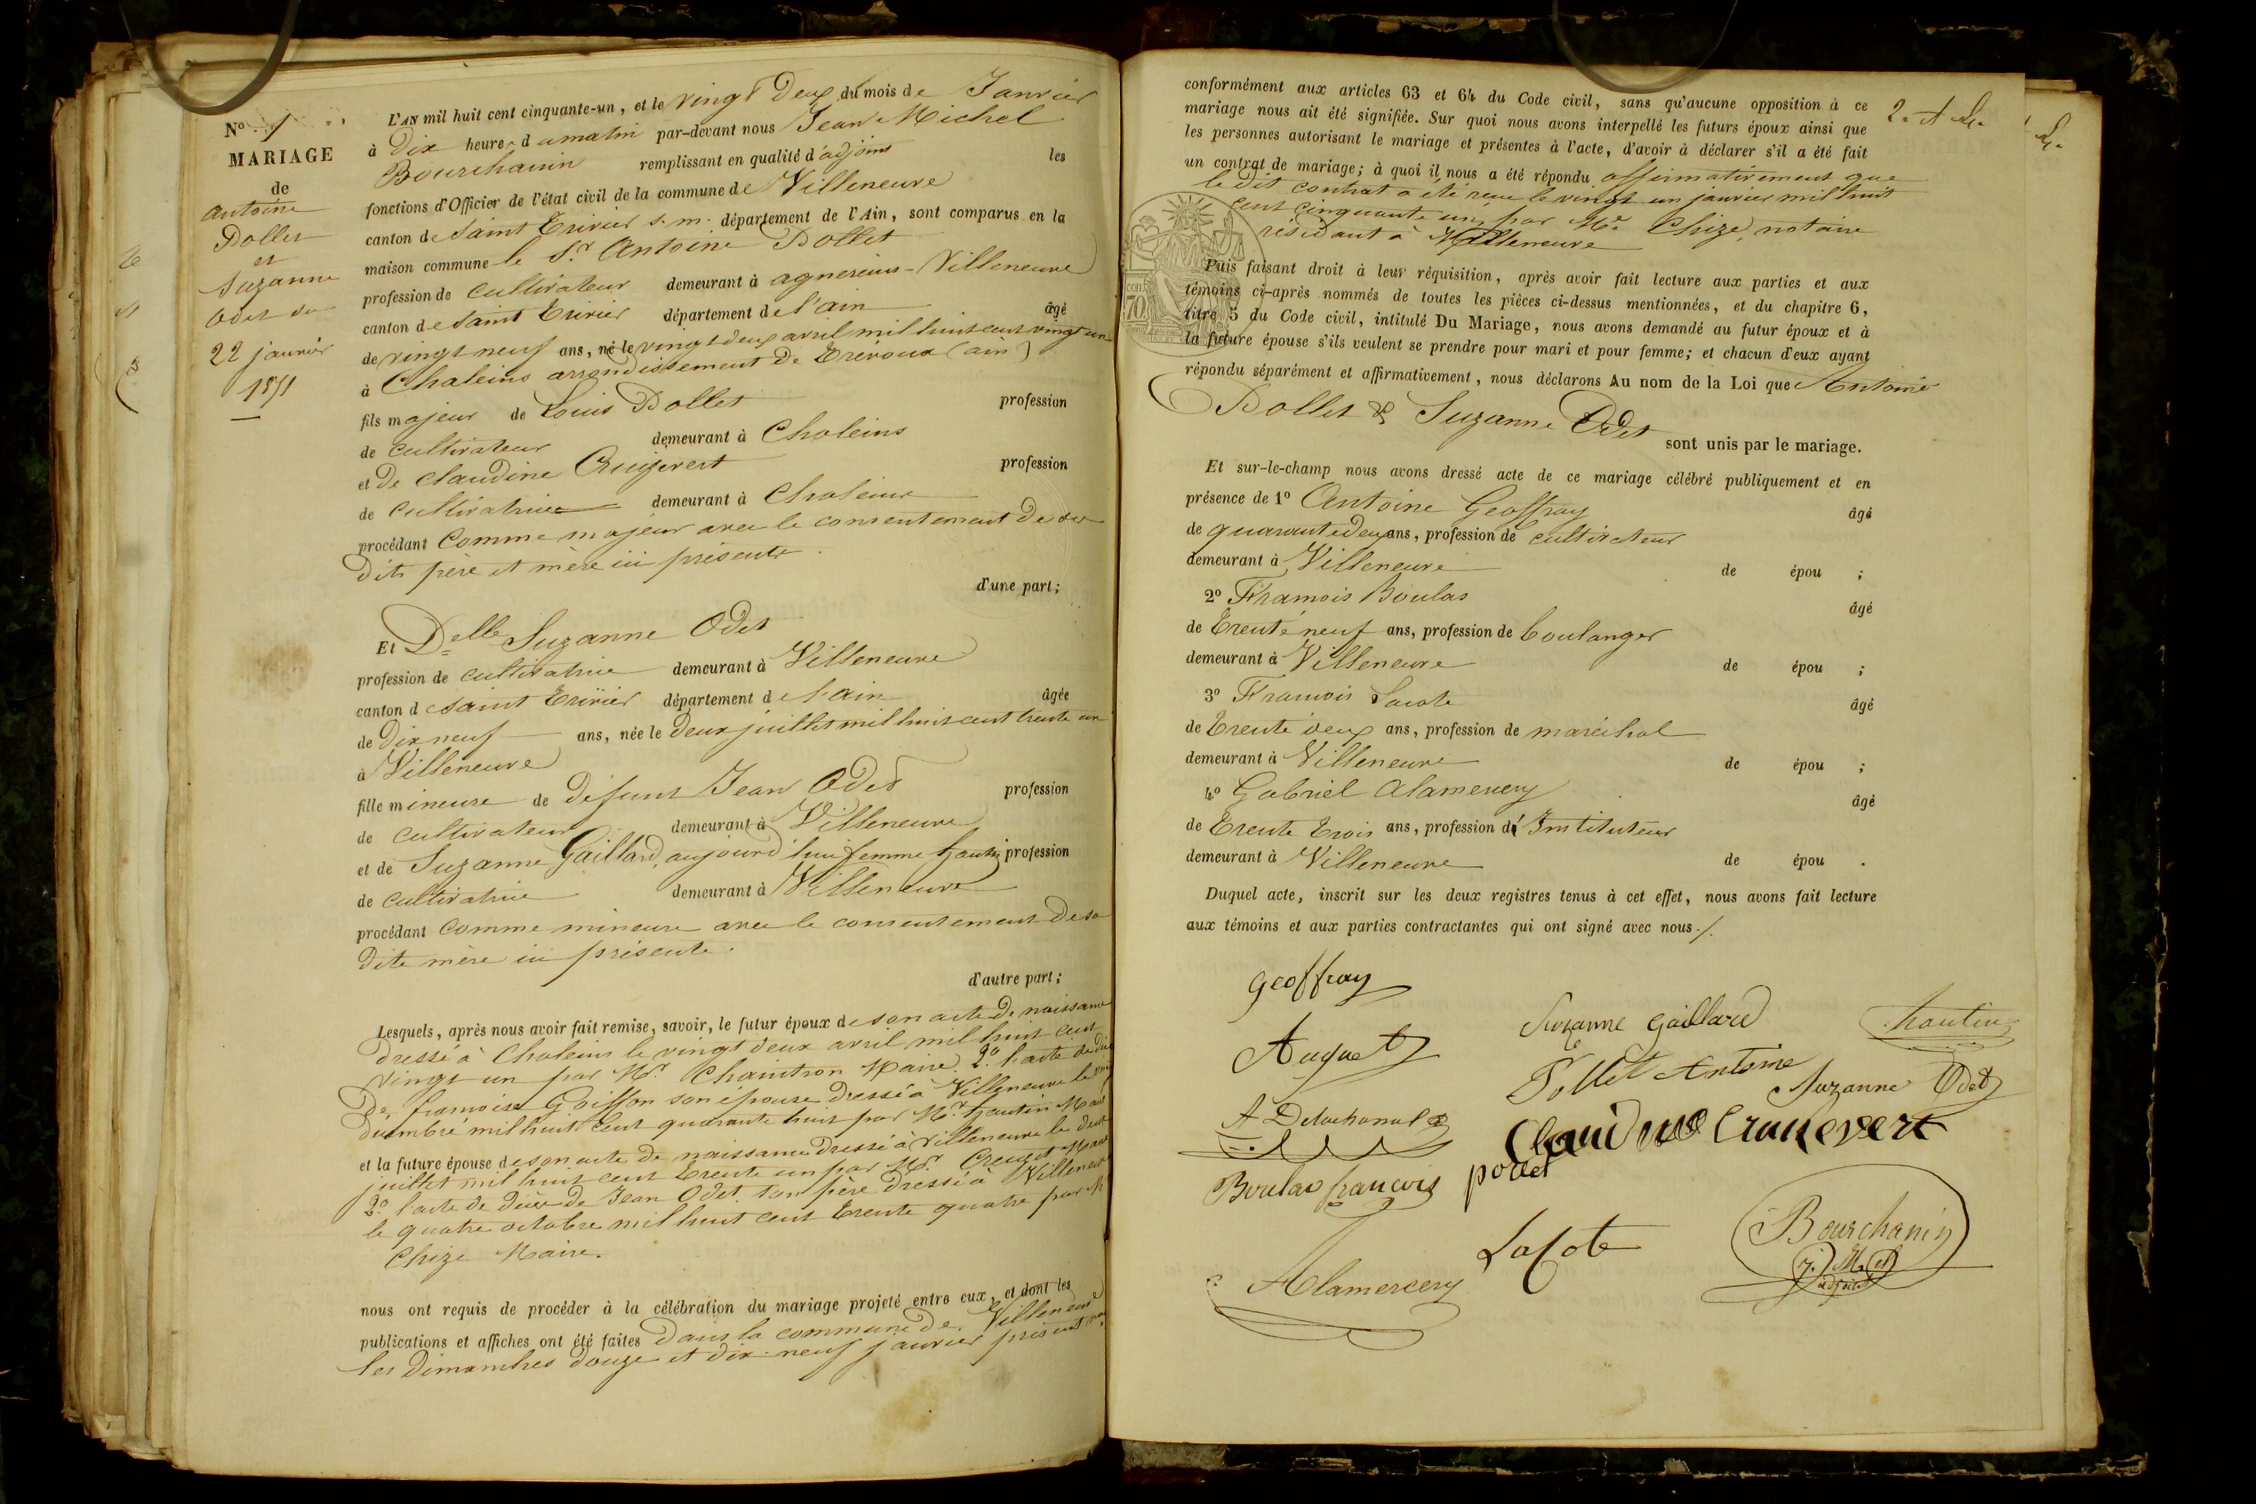 N° 1
MARIAGE
de
Antoine
Dollet
et
Suzanne
Odet du
22 janvier
1851
L'AN mil huit cent cinquante-un, et le vingt Deux du mois de Janvier
à Dix heures du matin par-devant nous Jean Michel
Bourchanin remplissant en qualité d'adjoint les
fonctions d'Officier de l'état civil de la commune de Villeneuve
canton de Saint Trivier s. m. département de l'Ain, sont comparus en la
maison commune le Sr. Antoine Dollet
profession de cultivateur demeurant à agnereins-Villeneuve
canton de Saint Trivier département de l'ain âgé
de vingt neuf ans, né le vingt deux avril mil huit cent vingt un
à Chaleins arrondissement de Trévoux (ain)
fils majeur de Louis Dollet profession
de cultivateur demeurant à Chaleins
et de Claudine profession
de cultivatrice demeurant à Chaleins
procédant Comme majeur avec le consentement de ses
dits père et mère ici présents.
d'une part;
Et Delle Suzanne Odet
profession de cultivatrice demeurant à Villeneuve
canton de Saint Trivier département de l'ain âgée
de Dix neuf ans, née le Deux juillet mil huit cent trente un
à Villeneuve
fille mineure de défunt Jean Odet profession
de cultivateur demeurant à Villeneuve
et de Suzanne Gaillard, aujourd'hui femme hautin profession
de cultivatrice demeurant à Villeneuve
procédant Comme mineure avec le consentement de sa
dite mère ici présente.
d'autre part;
Lesquels, après nous avoir fait remise, savoir, le futur époux de son acte de naissance
dressé à Chaleins le vingt deux avril mil huit cent
vingt un par Mr. Chantron Maire. 2° l'acte de décès
De françoise Goiffon son épouse dressé à Villeneuve le
décembre mil huit cent quarante huit par Mr. hautin Maire
et la future épouse de son acte de naissance dressé à Villeneuve le deux
juillet mil huit cent trente un par Mr. Creuzet Maire
2° l'acte de décès de Jean Odet son père dressé à Villeneuve
le quatre octobre mil huit cent trente quatre par Mr
Chize Maire.
nous ont requis de procéder à la célébration du mariage projeté entre eux, et dont les
publications et affiches ont été faites dans la commune de Villeneuve
les Dimanches douze et dix-neuf janvier présent mois
conformément aux articles 63 et 64 du Code civil, sans qu'aucune opposition à ce
mariage nous ait été signifiée. Sur quoi nous avons interpellé les futurs époux ainsi que
les personnes autorisant le mariage et présentes à l'acte, d'avoir à déclarer s'il a été fait
un contrat de mariage; à quoi il nous a été répondu affirmativement que
le dit contrat a été reçu le vingt un janvier mil huit
cent cinquante un, par Me. Chize, notaire
résidant à Villeneuve
Puis faisant droit à leur réquisition, après avoir fait lecture aux parties et aux
témoins ci-après nommés de toutes les pièces ci-dessus mentionnées, et du chapitre 6,
titre 5 du Code civil, intitulé Du Mariage, nous avons demandé au futur époux et à
la future épouse s'ils veulent se prendre pour mari et pour femme; et chacun d'eux ayant
répondu séparément et affirmativement, nous déclarons Au nom de la Loi que Antoine
Dollet & Suzanne Odet
sont unis par le mariage.
Et sur-le-champ nous avons dressé acte de ce mariage célébré publiquement et en
présence de 1° Antoine Geoffray âgé
de quarante deux ans, profession de cultivateur
demeurant à Villeneuve de épou ;
2° François Boulas âgé
de trente neuf ans, profession de boulanger
demeurant à Villeneuve de épou ;
3° François Lacote âgé
de trente deux ans, profession de maréchal
demeurant à Villeneuve de épou ;
4° Gabriel Alamercery âgé
de trente trois ans, profession d'Instituteur
demeurant à Villeneuve de épou .
Duquel acte, inscrit sur les deux registres tenus à cet effet, nous avons fait lecture
aux témoins et aux parties contractantes qui ont signé avec nous./.
Geoffray
Suzanne Gaillard
hautin
Auguet
Dollet Antoine
Suzanne Odet
Boulas françois
Lacote
Bourchanin
J. M. el
adjoint
Alamercery